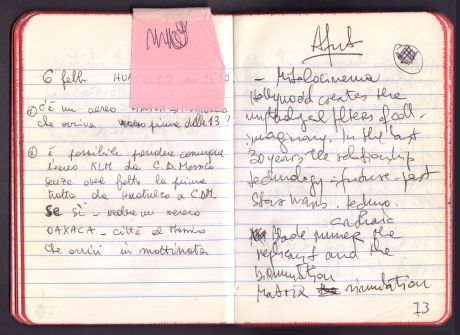 6 febb HUAT
① C'è un aereo
che arriva prima delle 13?
② È possibile prendere comunque
l'aereo KLM da C.D. Messico
senza aver fatto la prima
tratta da Huatulco a C.D.M.
Se sì - vedere un aereo
OAXACA - città del Messico
che arrivi in mattinata
- Mitolocinema
Hollywood creates the
mythological of coll.
imaginary. In the last
20 years the relationship
technology - future - past
Star Wars. techno.
archaic
Blade runner the
replicant and the
Matrix simulation
73